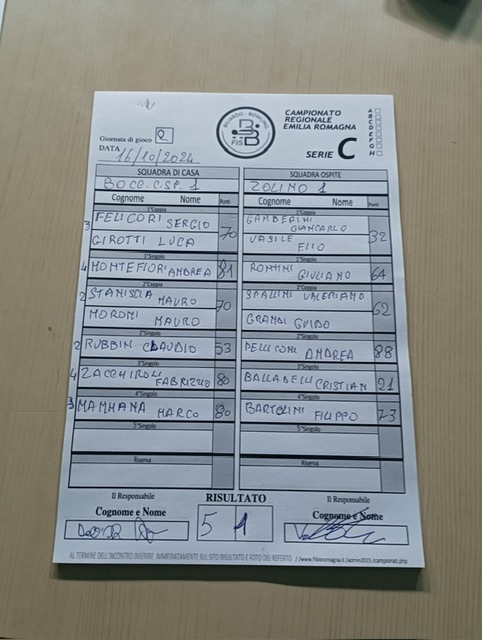 BILIARDO - BOWLING
FIS
CAMPIONATO
REGIONALE
EMILIA ROMAGNA
SERIE C
A
B
C
D
E
F
G
H
Giornata di gioco 2
DATA 16/10/2024
SQUADRA DI CASA SQUADRA OSPITE
BOCC. C.SP. 1 ZOLINO 1
Cognome Nome Punti Cognome Nome Punti
1ªCoppia 1ªCoppia
3 FELICORI SERGIO 70 GAMBERINI GIANCARLO 32
GIROTTI LUCA VASILE ELIO
1°Singolo 1°Singolo
4 MONTEFIORI ANDREA 81 RONTINI GIULIANO 64
2ªCoppia 2ªCoppia
2 STANISCIA MAURO 70 SPALLINI VALERIANO 62
MORONI MAURO GRANDI GUIDO
2°Singolo 2°Singolo
2 RUBBINI CLAUDIO 53 PELLICONI ANDREA 88
3°Singolo 3°Singolo
4 ZACCHIROLI FABRIZIO 80 BALLADELLI CRISTIAN 21
4°Singolo 4°Singolo
3 MAMMANA MARCO 80 BARTOLINI FILIPPO 73
5°Singolo 5°Singolo
Riserva Riserva
Il Responsabile RISULTATO Il Responsabile
Cognome e Nome 5 1 Cognome e Nome
AL TERMINE DELL'INCONTRO INSERIRE IMMEDIATAMENTE SUL SITO RISULTATO E FOTO DEL REFERTO